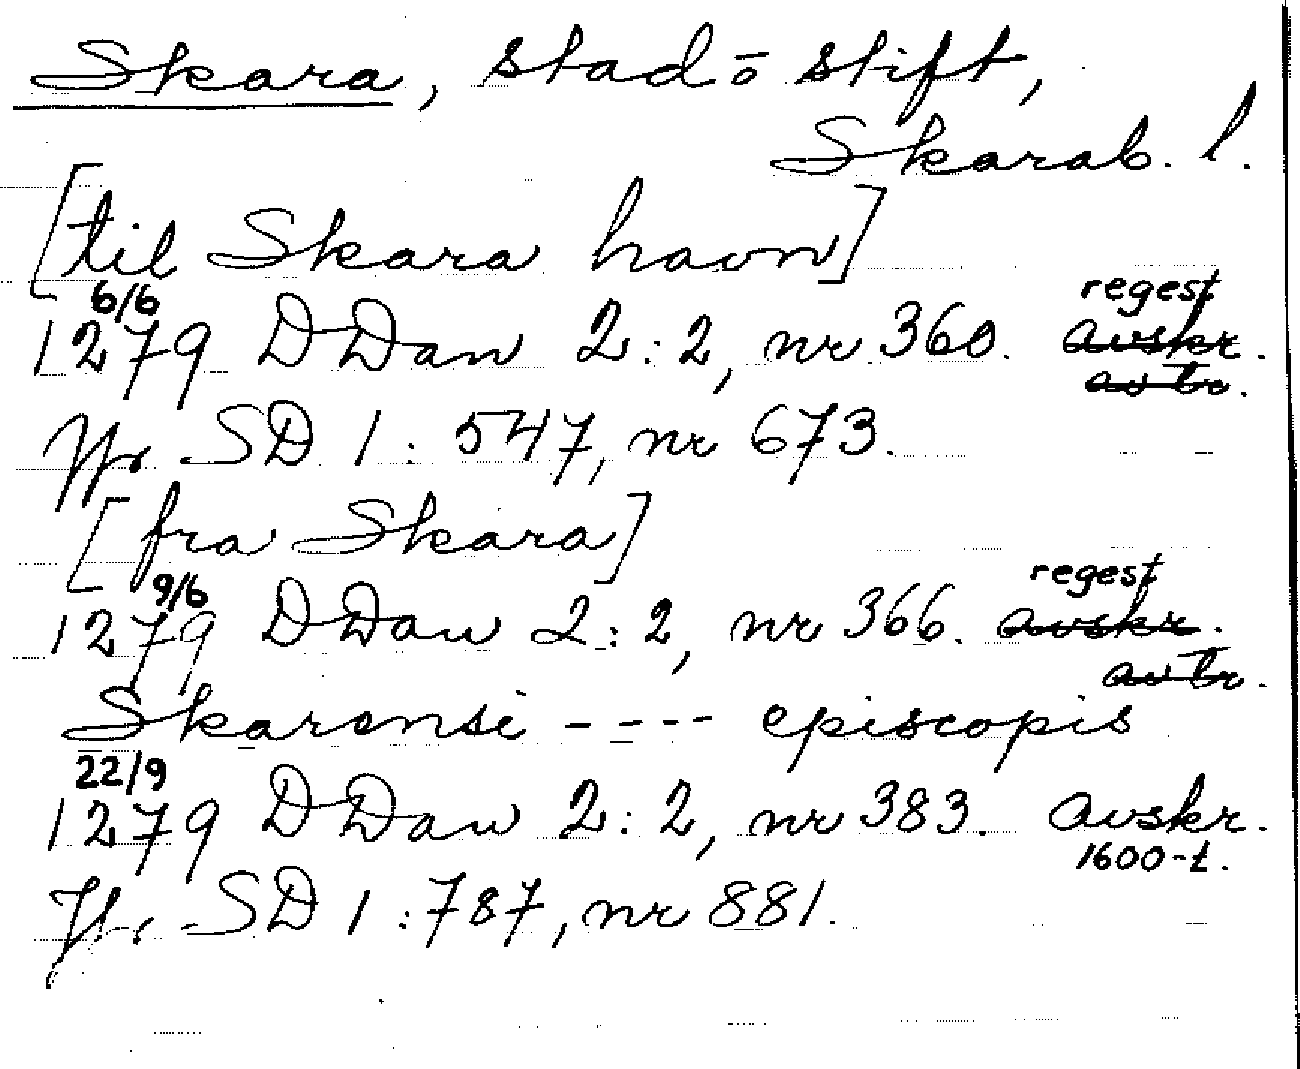 Skara, stad o stift,
Skarab. l.
[til Skara havn]
6/6 regest
1279 DDan 2:2, nr 360. avskr.
av tr.
Jfr SD 1: 547, nr 673.
[fra Skara]
9/6 regest
1279 DDan 2:2, nr 366. avskr.
av tr.
Skarensi - - - - episcopis
22/9
1279 DDan 2:2, nr 383. avskr.
1600-t.
Jfr SD 1:787, nr 881.